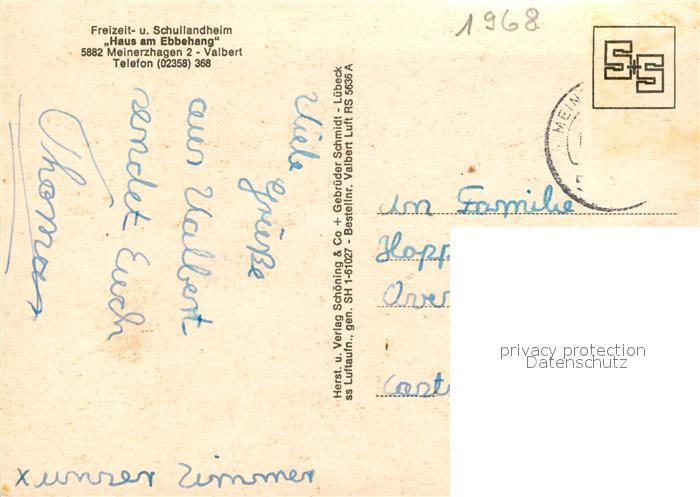 Freizeit- u. Schullandheim
„Haus am Ebbehang"
5882 Meinerzhagen 2 - Valbert
Telefon (02358) 368
1968
S+S
MEIN
Viele
Grüße
aus Valbert
sendet Euch
Thomas
Herst. u. Verlag Schöning & Co + Gebrüder Schmidt - Lübeck
ss Luftaufn., gen. SH 1-61027 - Bestellnr. Valbert Luft RS 5636 A
An Familie
Happ
Over
Cast
x unser Zimmer
privacy protection
Datenschutz